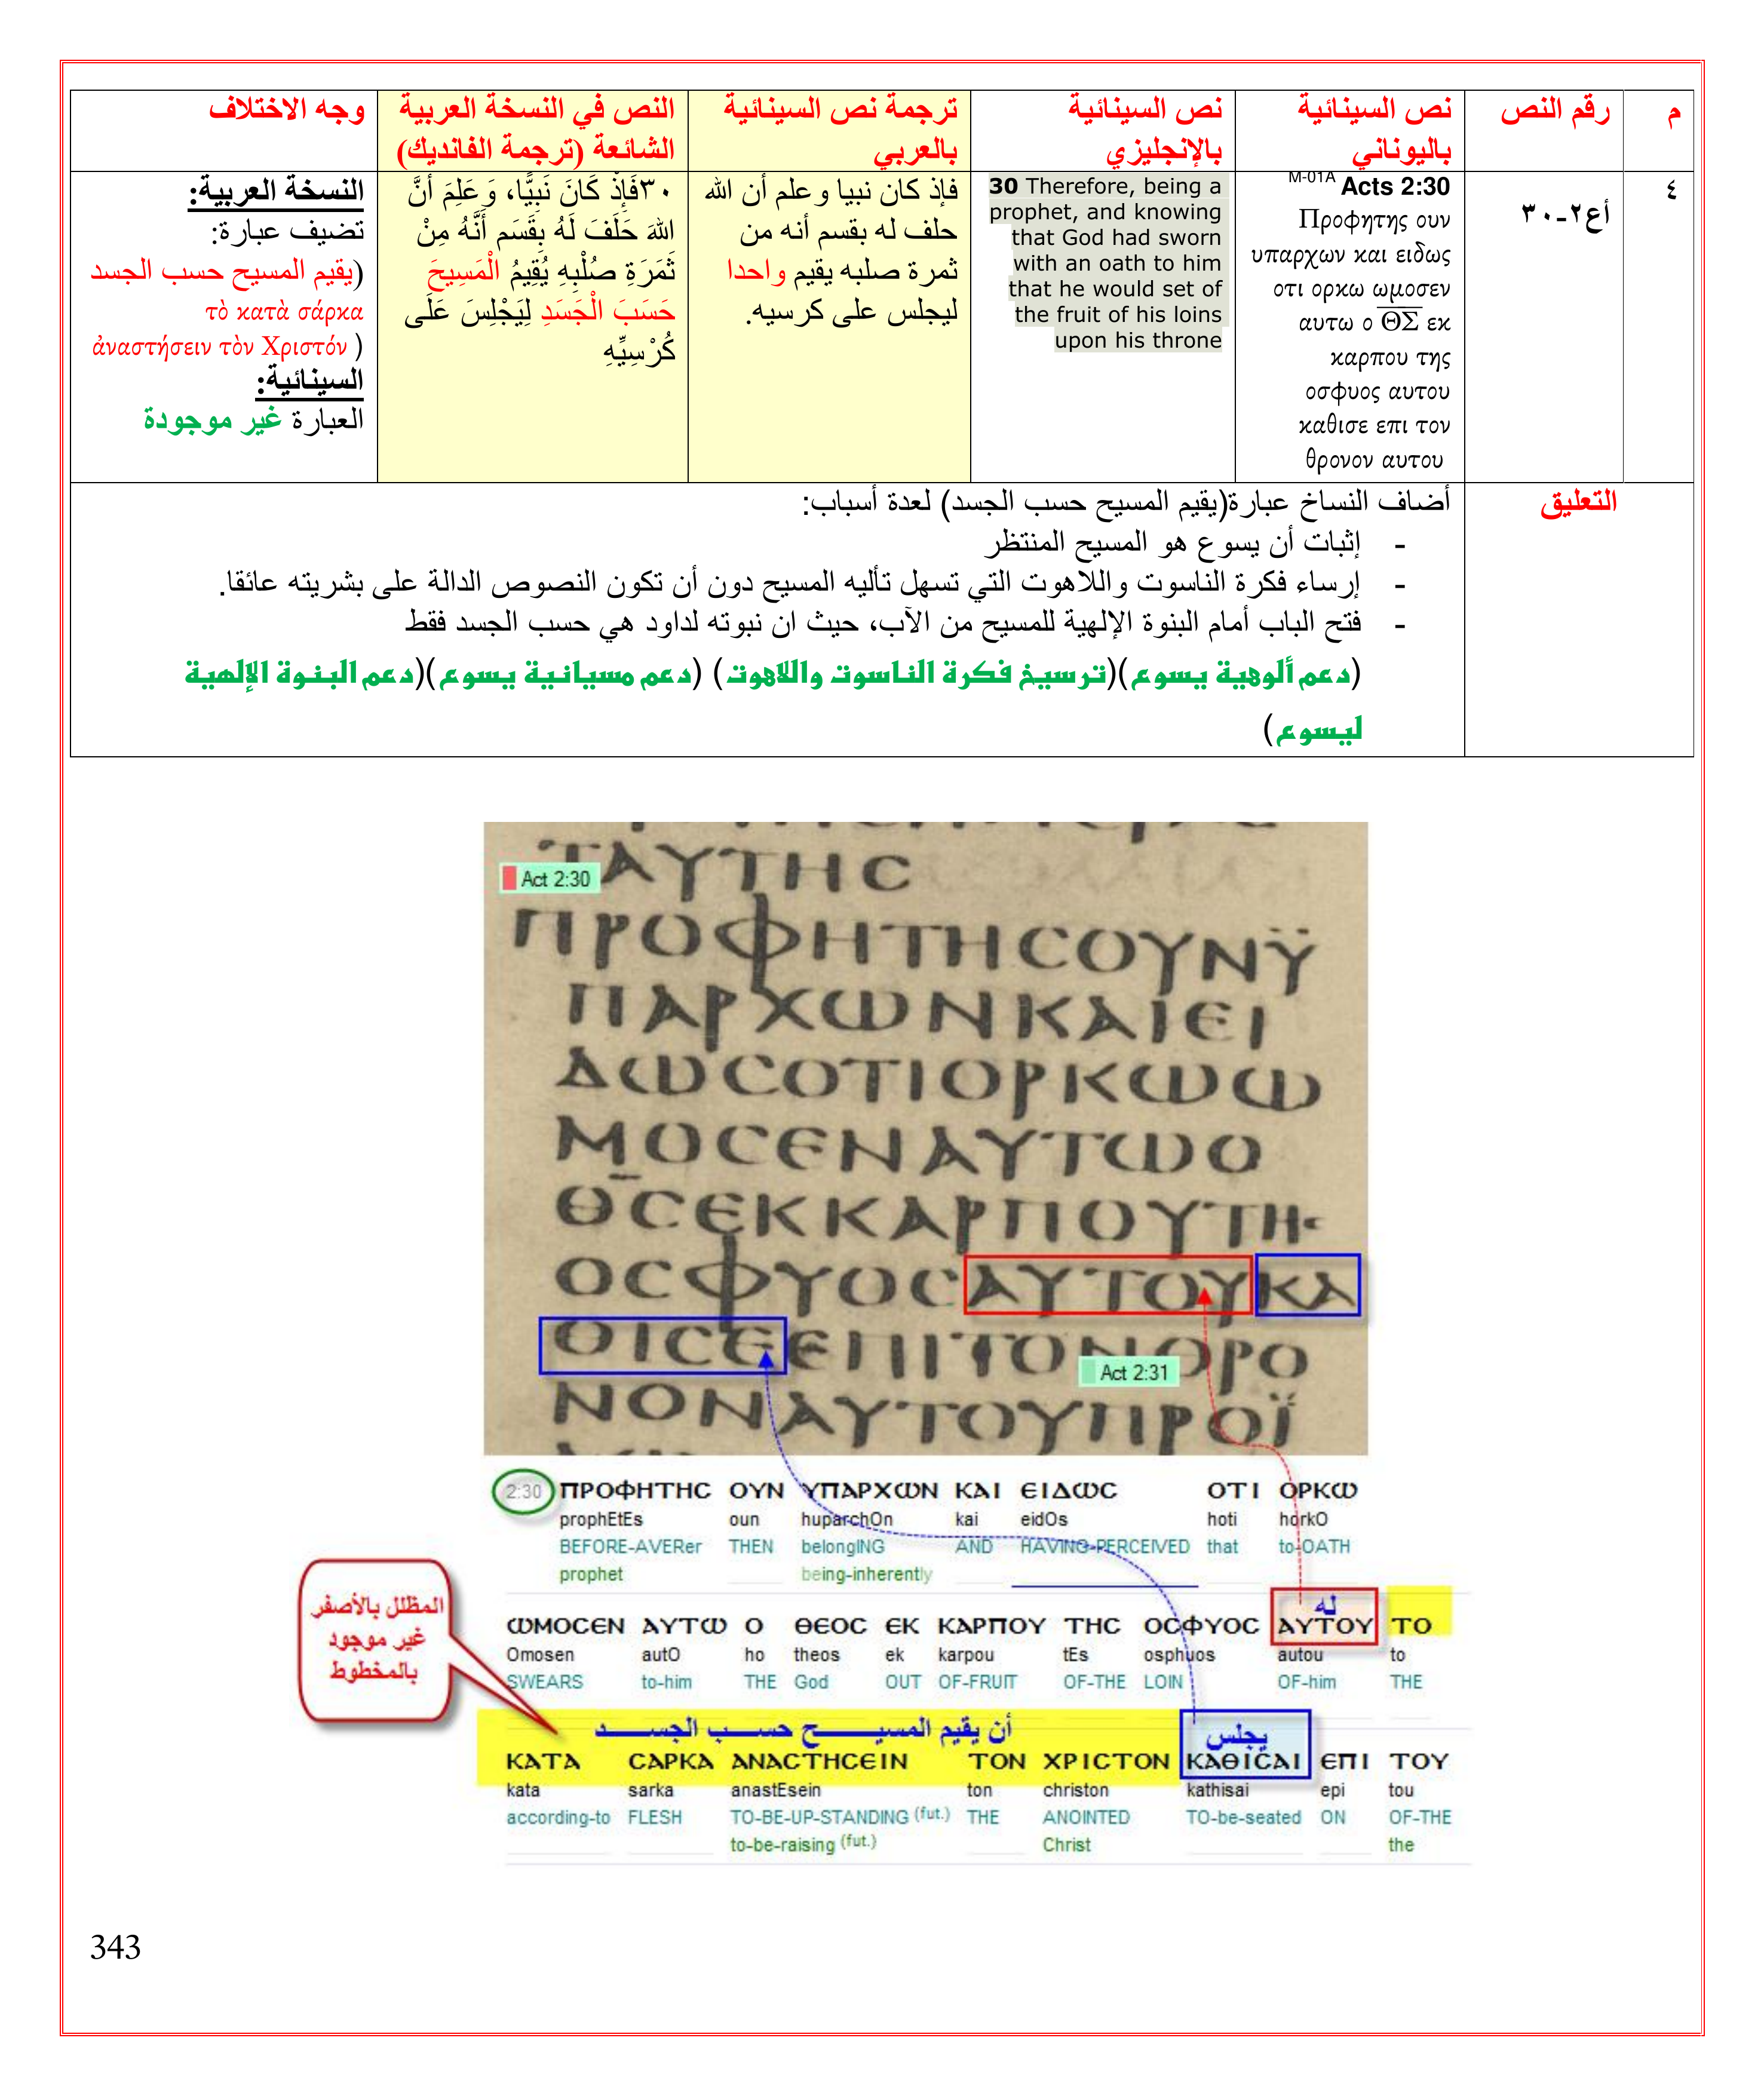 م
رقم النص
نص السينائية
باليوناني
نص السينائية
بالإنجليزي
ترجمة نص السينائية
بالعربي
النص في النسخة العربية
الشائعة (ترجمة الفانديك)
وجه الاختلاف
٤
أع٢-٣٠
M-01A Acts 2:30
Προφητης ουν
υπαρχων και ειδως
οτι ορκω ωμοσεν
αυτω ο ΘΣ εκ
καρπου της
οσφυος αυτου
καθισε επι τον
θρονον αυτου
30 Therefore, being a
prophet, and knowing
that God had sworn
with an oath to him
that he would set of
the fruit of his loins
upon his throne
فإذ كان نبيا وعلم أن الله
حلف له بقسم أنه من
ثمرة صلبه يقيم واحدا
ليجلس على كرسيه.
٣٠فَإِذْ كَانَ نَبِيًّا، وَعَلِمَ أَنَّ
اللهَ حَلَفَ لَهُ بِقَسَمٍ أَنَّهُ مِنْ
ثَمَرَةِ صُلْبِهِ يُقِيمُ الْمَسِيحَ
حَسَبَ الْجَسَدِ لِيَجْلِسَ عَلَى
كُرْسِيِّهِ
النسخة العربية:
تضيف عبارة:
(يقيم المسيح حسب الجسد
τὸ κατὰ σάρκα
ἀναστήσειν τὸν Χριστόν )
السينائية:
العبارة غير موجودة
التعليق
أضاف النساخ عبارة(يقيم المسيح حسب الجسد) لعدة أسباب:
- إثبات أن يسوع هو المسيح المنتظر
- إرساء فكرة الناسوت واللاهوت التي تسهل تأليه المسيح دون أن تكون النصوص الدالة على بشريته عائقا.
- فتح الباب أمام البنوة الإلهية للمسيح من الآب، حيث ان نبوته لداود هي حسب الجسد فقط
(دعم ألوهية يسوع)(ترسيخ فكرة الناسوت واللاهوت) (دعم مسيانية يسوع)(دعم البنوة الإلهية
ليسوع)
ΤΑΥΤΗϹ
Act 2:30
ΠΡΟΦΗΤΗϹΟΥΝΫ
ΠΑΡΧΩΝΚΑΙΕΙ
ΔΩϹΟΤΙΟΡΚΩΩ
ΜΟϹΕΝΑΥΤΩΟ
ΘϹΕΚΚΑΡΠΟΥΤΗϹ
ΟϹΦΥΟϹΑΥΤΟΥΚΑ
ΘΙϹΕΕΠΙΤΟΝΘΡΟ
Act 2:31
ΝΟΝΑΥΤΟΥΠΡΟΪ
2:30 ΠΡΟΦΗΤΗϹ ΟΥΝ ΥΠΑΡΧΩΝ ΚΑΙ ΕΙΔΩϹ ΟΤΙ ΟΡΚΩ
prophEtEs oun huparchOn kai eidOs hoti horkO
BEFORE-AVERer THEN belongING AND HAVING-PERCEIVED that to-OATH
prophet being-inherently
المظلل بالأصفر
غير موجود
بالمخطوط
له
ΩΜΟϹΕΝ ΑΥΤΩ Ο ΘΕΟϹ ΕΚ ΚΑΡΠΟΥ ΤΗϹ ΟϹΦΥΟϹ ΑΥΤΟΥ ΤΟ
Omosen autO ho theos ek karpou tEs osphuos autou to
SWEARS to-him THE God OUT OF-FRUIT OF-THE LOIN OF-him THE
أن يقيم المسيح حسب الجسد
يجلس
ΚΑΤΑ ϹΑΡΚΑ ΑΝΑϹΤΗϹΕΙΝ ΤΟΝ ΧΡΙϹΤΟΝ ΚΑΘΙϹΑΙ ΕΠΙ ΤΟΥ
kata sarka anastEsein ton christon kathisai epi tou
according-to FLESH TO-BE-UP-STANDING (fut.) THE ANOINTED TO-be-seated ON OF-THE
to-be-raising (fut.) Christ the
343